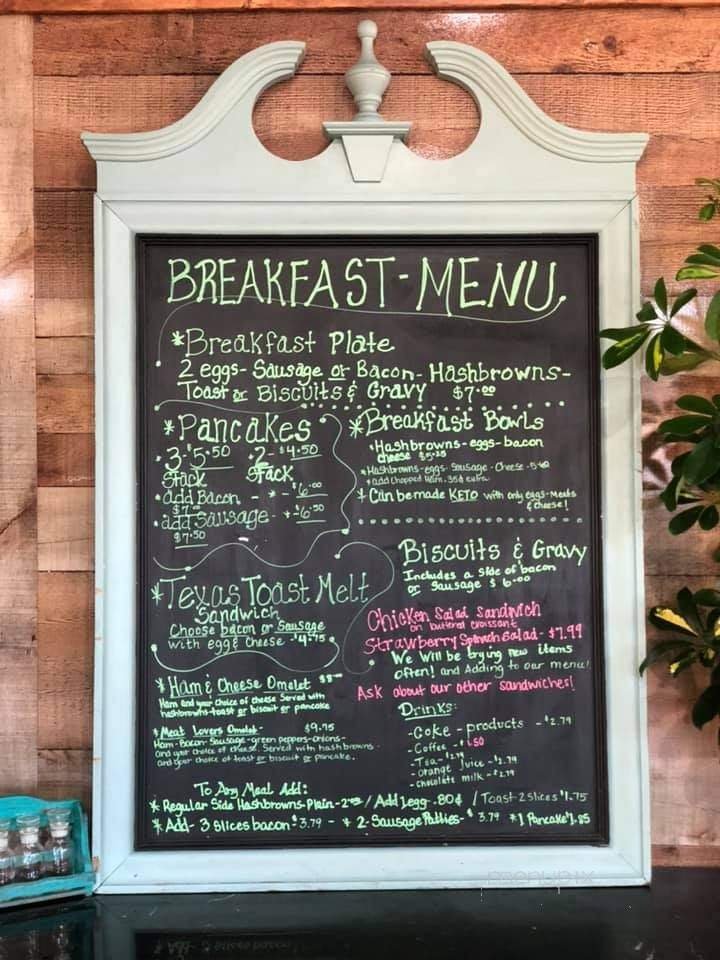 BREAKFAST-MENU
*Breakfast Plate
2 eggs- Sausage or Bacon- Hashbrowns-
Toast or Biscuits & Gravy $7.00
*Pancakes
3- $5.50 2- $4.50
Stack Stack
add Bacon - * - $6.00
$7.00
add Sausage - * $6.50
$7.50
*Breakfast Bowls
*Hashbrowns-eggs-bacon
cheese $5.25
*Hashbrowns-eggs-Sausage-Cheese-
*add Chopped Ham. 35¢ extra
*Can be made KETO with only eggs-Meats
& cheese!
Biscuits & Gravy
Includes a side of bacon
or Sausage $6.00
*Texas Toast Melt
Sandwich
Choose bacon or Sausage
with egg & Cheese $4.75
Chicken Salad Sandwich
on buttered croissant
Strawberry Spinach Salad- $7.99
We will be trying new items
often! and Adding to our menu!
Ask about our other sandwiches!
*Ham & Cheese Omelet $8
Ham and your choice of cheese Served with
hashbrowns-toast or biscuit or pancake
*Meat Lovers Omelet $9.75
Ham-Bacon-Sausage-green peppers-onions-
and your choice of cheese. Served with hashbrowns
and your choice of toast or biscuit or pancake.
Drinks:
-Coke-products -$2.79
-Coffee-$1.50
-Tea-$2.79
-orange Juice-$2.79
-chocolate milk-$2.79
To Any Meal Add:
*Regular Side Hashbrowns-Plain- / Add 1 egg-80¢ / Toast-2 Slices $1.75
*Add-3 slices bacon $3.79 - *2-Sausage Patties- $3.79 *1 Pancake $1.85
menupix